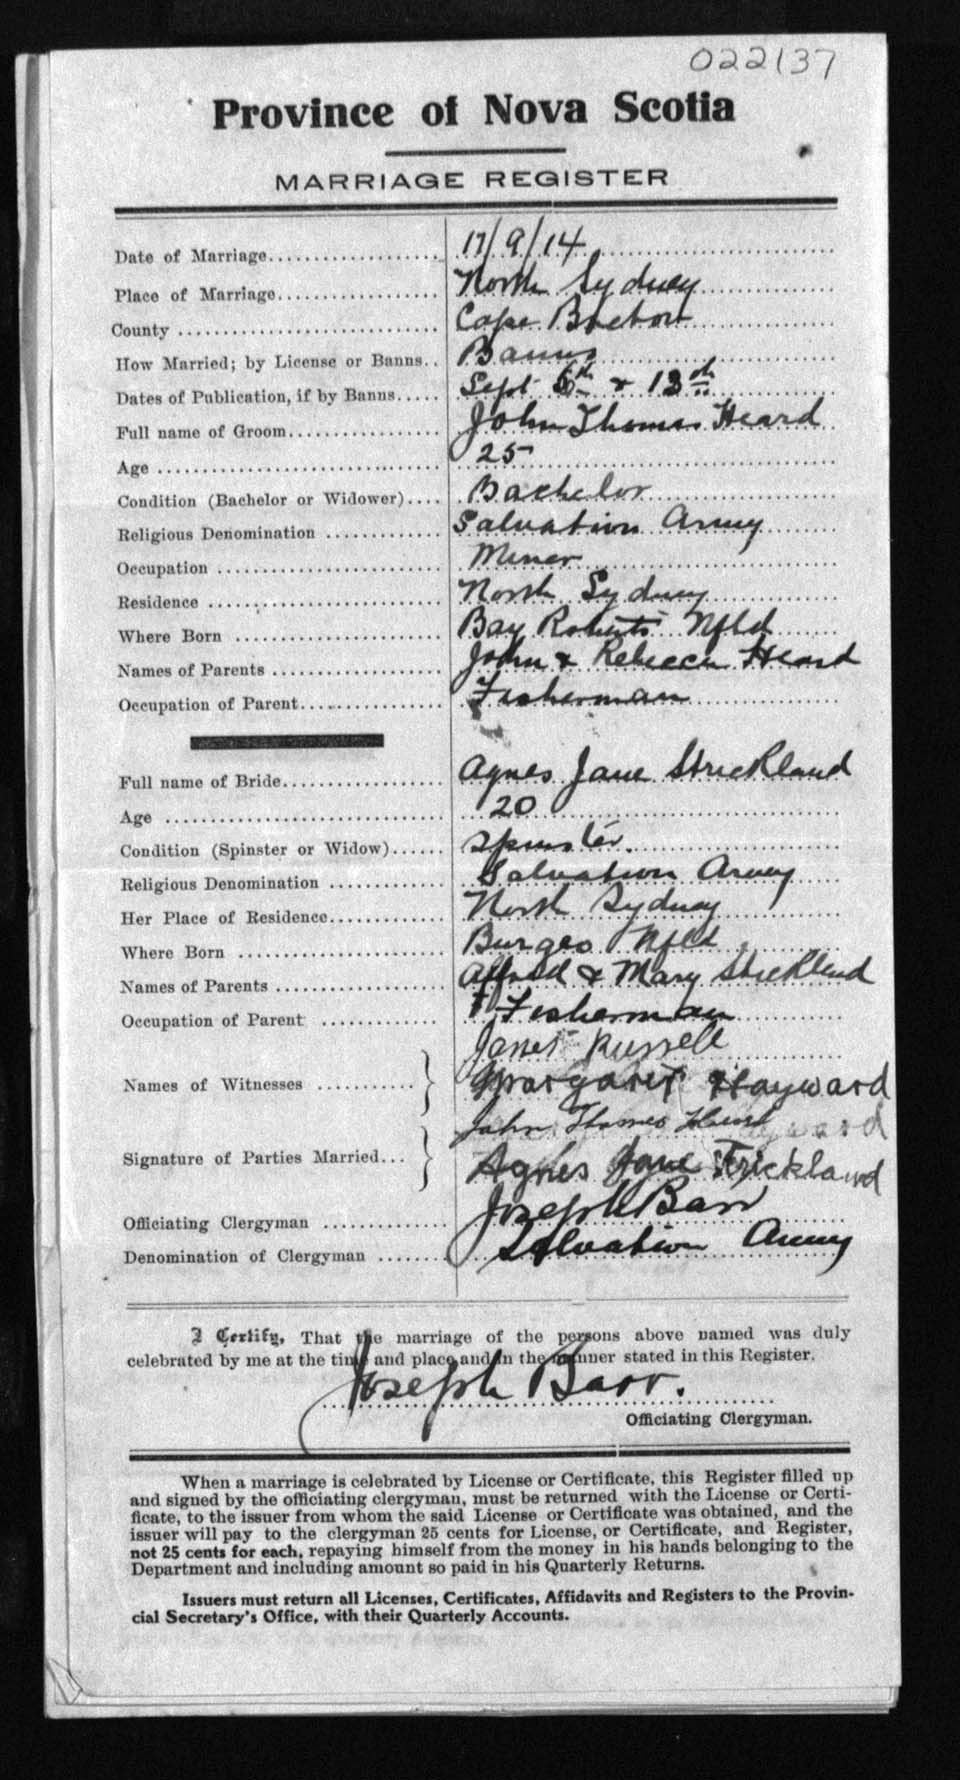 022137
Province of Nova Scotia
MARRIAGE REGISTER
Date of Marriage 17/9/14
Place of Marriage North Sydney
County Cape Breton
How Married; by License or Banns Banns
Dates of Publication, if by Banns Sept 6th & 13th
Full name of Groom John Thomas Heard
Age 25
Condition (Bachelor or Widower) Bachelor
Religious Denomination Salvation Army
Occupation Miner
Residence North Sydney
Where Born Bay Roberts Nfld
Names of Parents John & Rebecca Heard
Occupation of Parent Fisherman
Full name of Bride Agnes Jane Strickland
Age 20
Condition (Spinster or Widow) Spinster.
Religious Denomination Salvation Army
Her Place of Residence North Sydney
Where Born Burgeo Nfld
Names of Parents Alfred & Mary Strickland
Occupation of Parent Fisherman
Names of Witnesses Janet Russell
Margaret Hayward
Signature of Parties Married John Thomas Heard
Agnes Jane Strickland
Officiating Clergyman Joseph Barr
Denomination of Clergyman Salvation Army
I Certify, That the marriage of the persons above named was duly
celebrated by me at the time and place and in the manner stated in this Register.
Joseph Barr.
Officiating Clergyman.
When a marriage is celebrated by License or Certificate, this Register filled up
and signed by the officiating clergyman, must be returned with the License or Certi-
ficate, to the issuer from whom the said License or Certificate was obtained, and the
issuer will pay to the clergyman 25 cents for License, or Certificate, and Register,
not 25 cents for each, repaying himself from the money in his hands belonging to the
Department and including amount so paid in his Quarterly Returns.
Issuers must return all Licenses, Certificates, Affidavits and Registers to the Provin-
cial Secretary's Office, with their Quarterly Accounts.